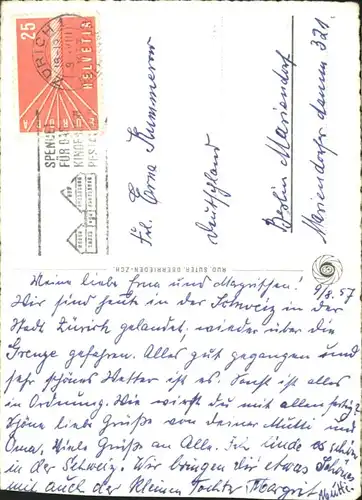 25
HELVETIA
EUROPA
ZÜRICH 1
SPENDET
FÜR DAS
KINDERDORF
PESTALOZZI
Frl. Erna Kummerow
Deutschland
Berlin Mariendorf
Mariendorfer damm 321
RUD. SUTER, OBERRIEDEN-ZCH.
9/8. 57
Meine liebe Erna und Magrittchen!
Wir sind heute in der Schweiz in der
Stadt Zürich gelandet, wieder über die
Grenze gefahren. Alles gut gegangen und
sehr schönes Wetter ist es. Sonst ist alles
in Ordnung. Wie wirst du mit allen fertig?
Schöne liebe Grüße von deiner Mutti und
Oma. Viele Grüße an Alle. Ich finde es schön
in der Schweiz. Wir bringen dir etwas Schönes
mit auch der kleinen Tochter Margrit. Mutti